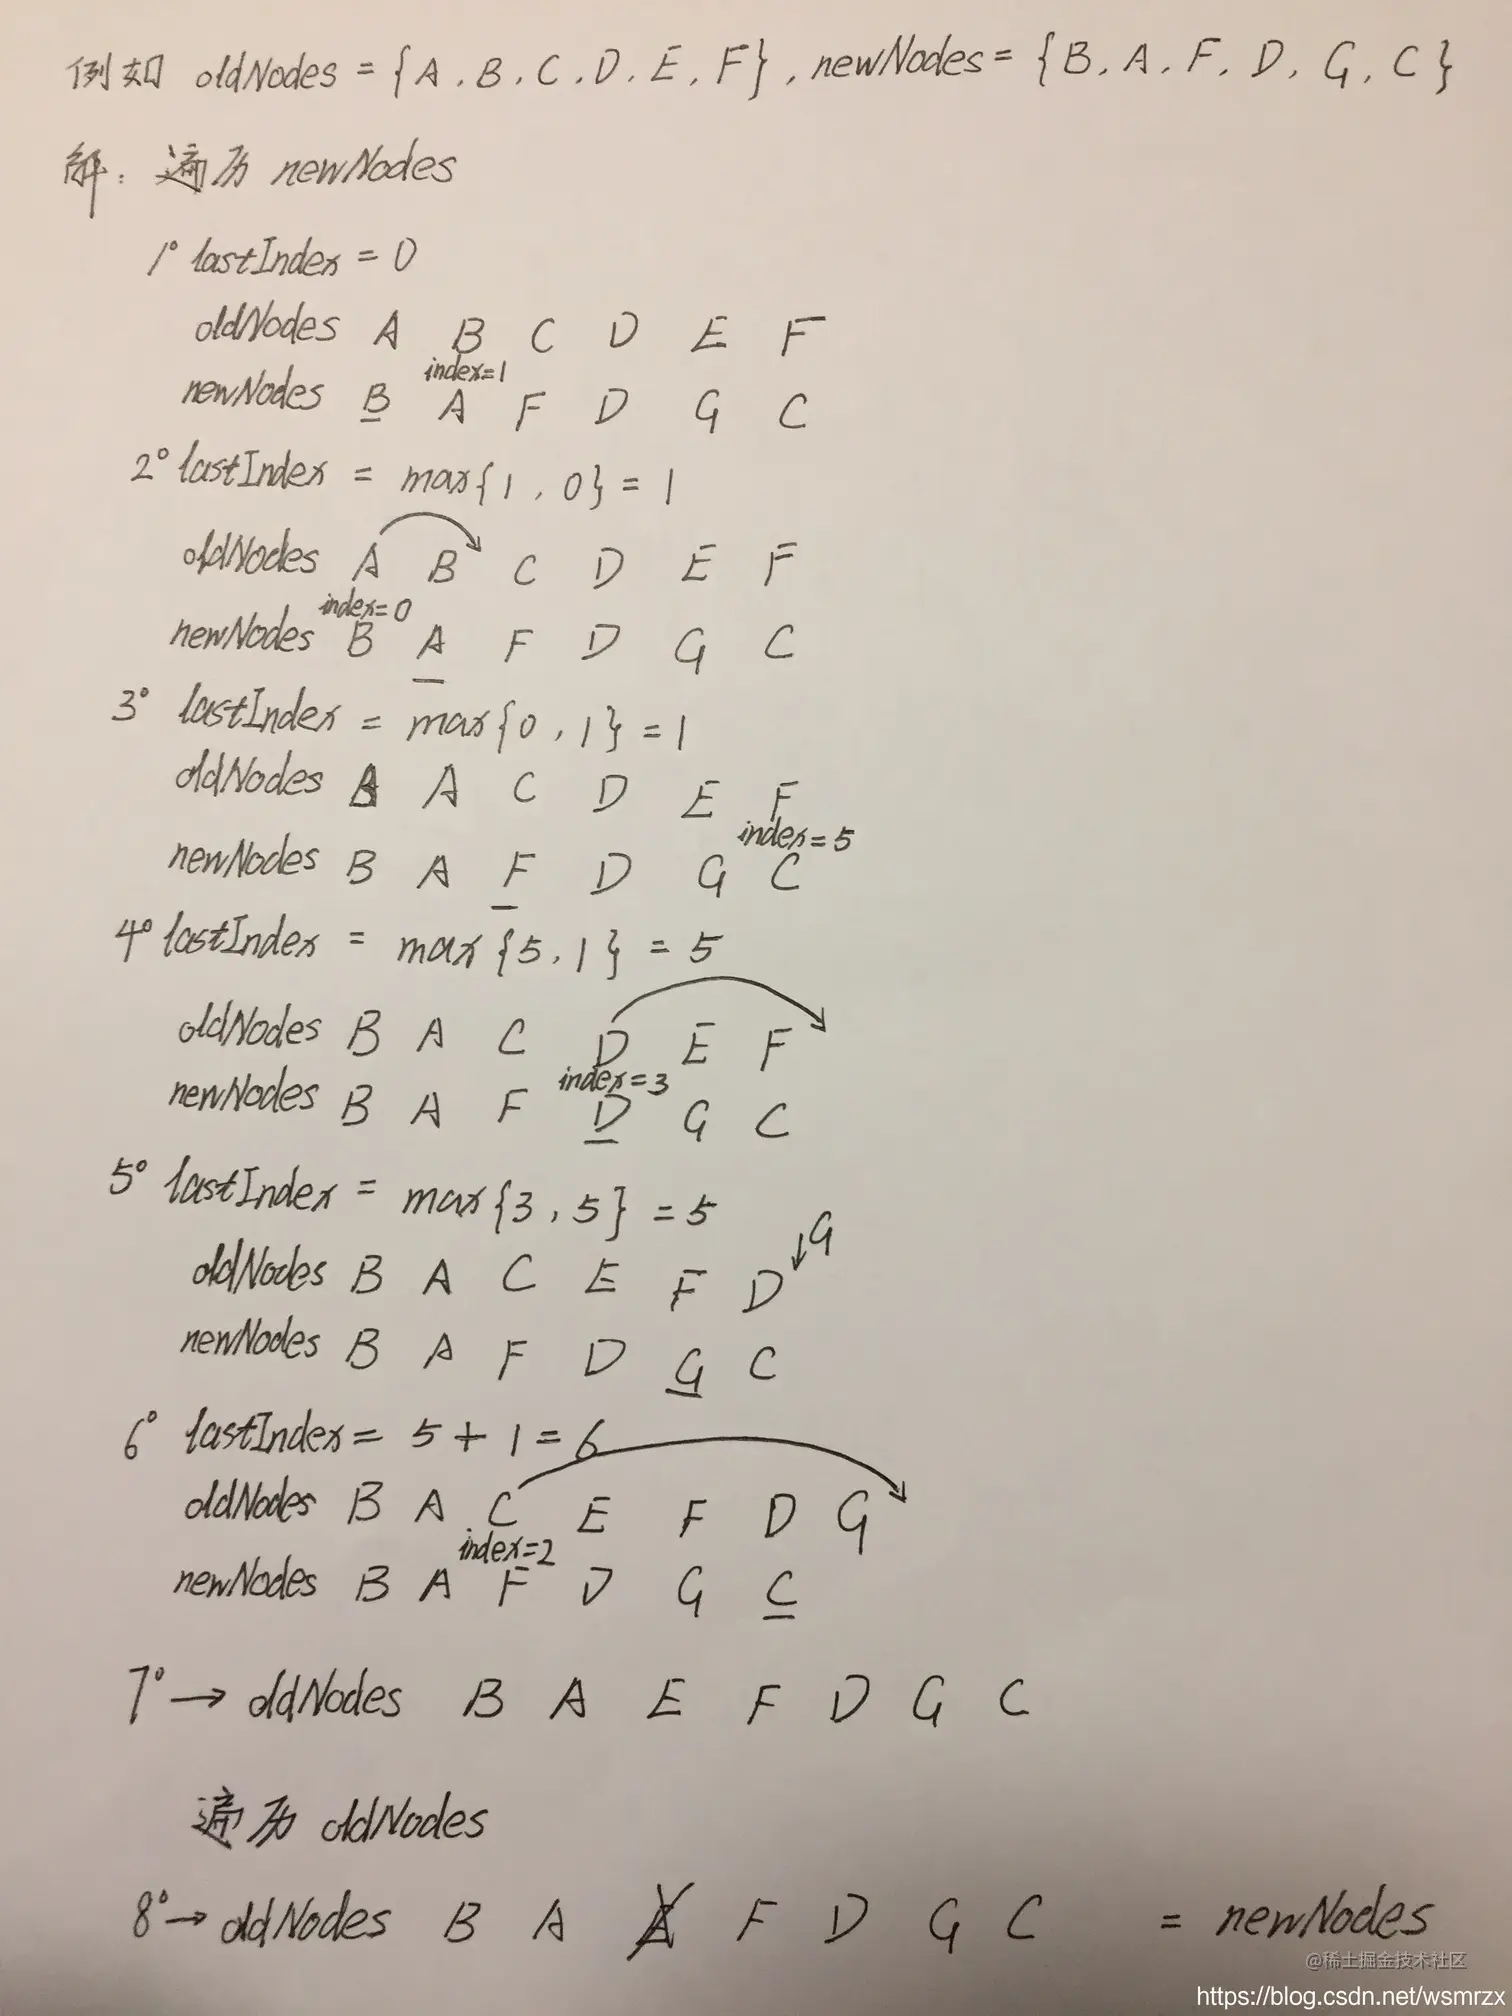 例如 oldNodes = {A, B, C, D, E, F}, newNodes = {B, A, F, D, G, C}
解: 遍历 newNodes
1° lastIndex = 0
oldNodes A B C D E F
index=1
newNodes B A F D G C
2° lastIndex = max{1, 0} = 1
oldNodes A B C D E F
index=0
newNodes B A F D G C
3° lastIndex = max{0, 1} = 1
oldNodes B A C D E F
index=5
newNodes B A F D G C
4° lastIndex = max{5, 1} = 5
oldNodes B A C D E F
index=3
newNodes B A F D G C
5° lastIndex = max{3, 5} = 5
G
oldNodes B A C E F D
newNodes B A F D G C
6° lastIndex = 5 + 1 = 6
oldNodes B A C E F D G
index=2
newNodes B A F D G C
7° → oldNodes B A E F D G C
遍历 oldNodes
8° → oldNodes B A E F D G C = newNodes
@稀土掘金技术社区
https://blog.csdn.net/wsmrzx